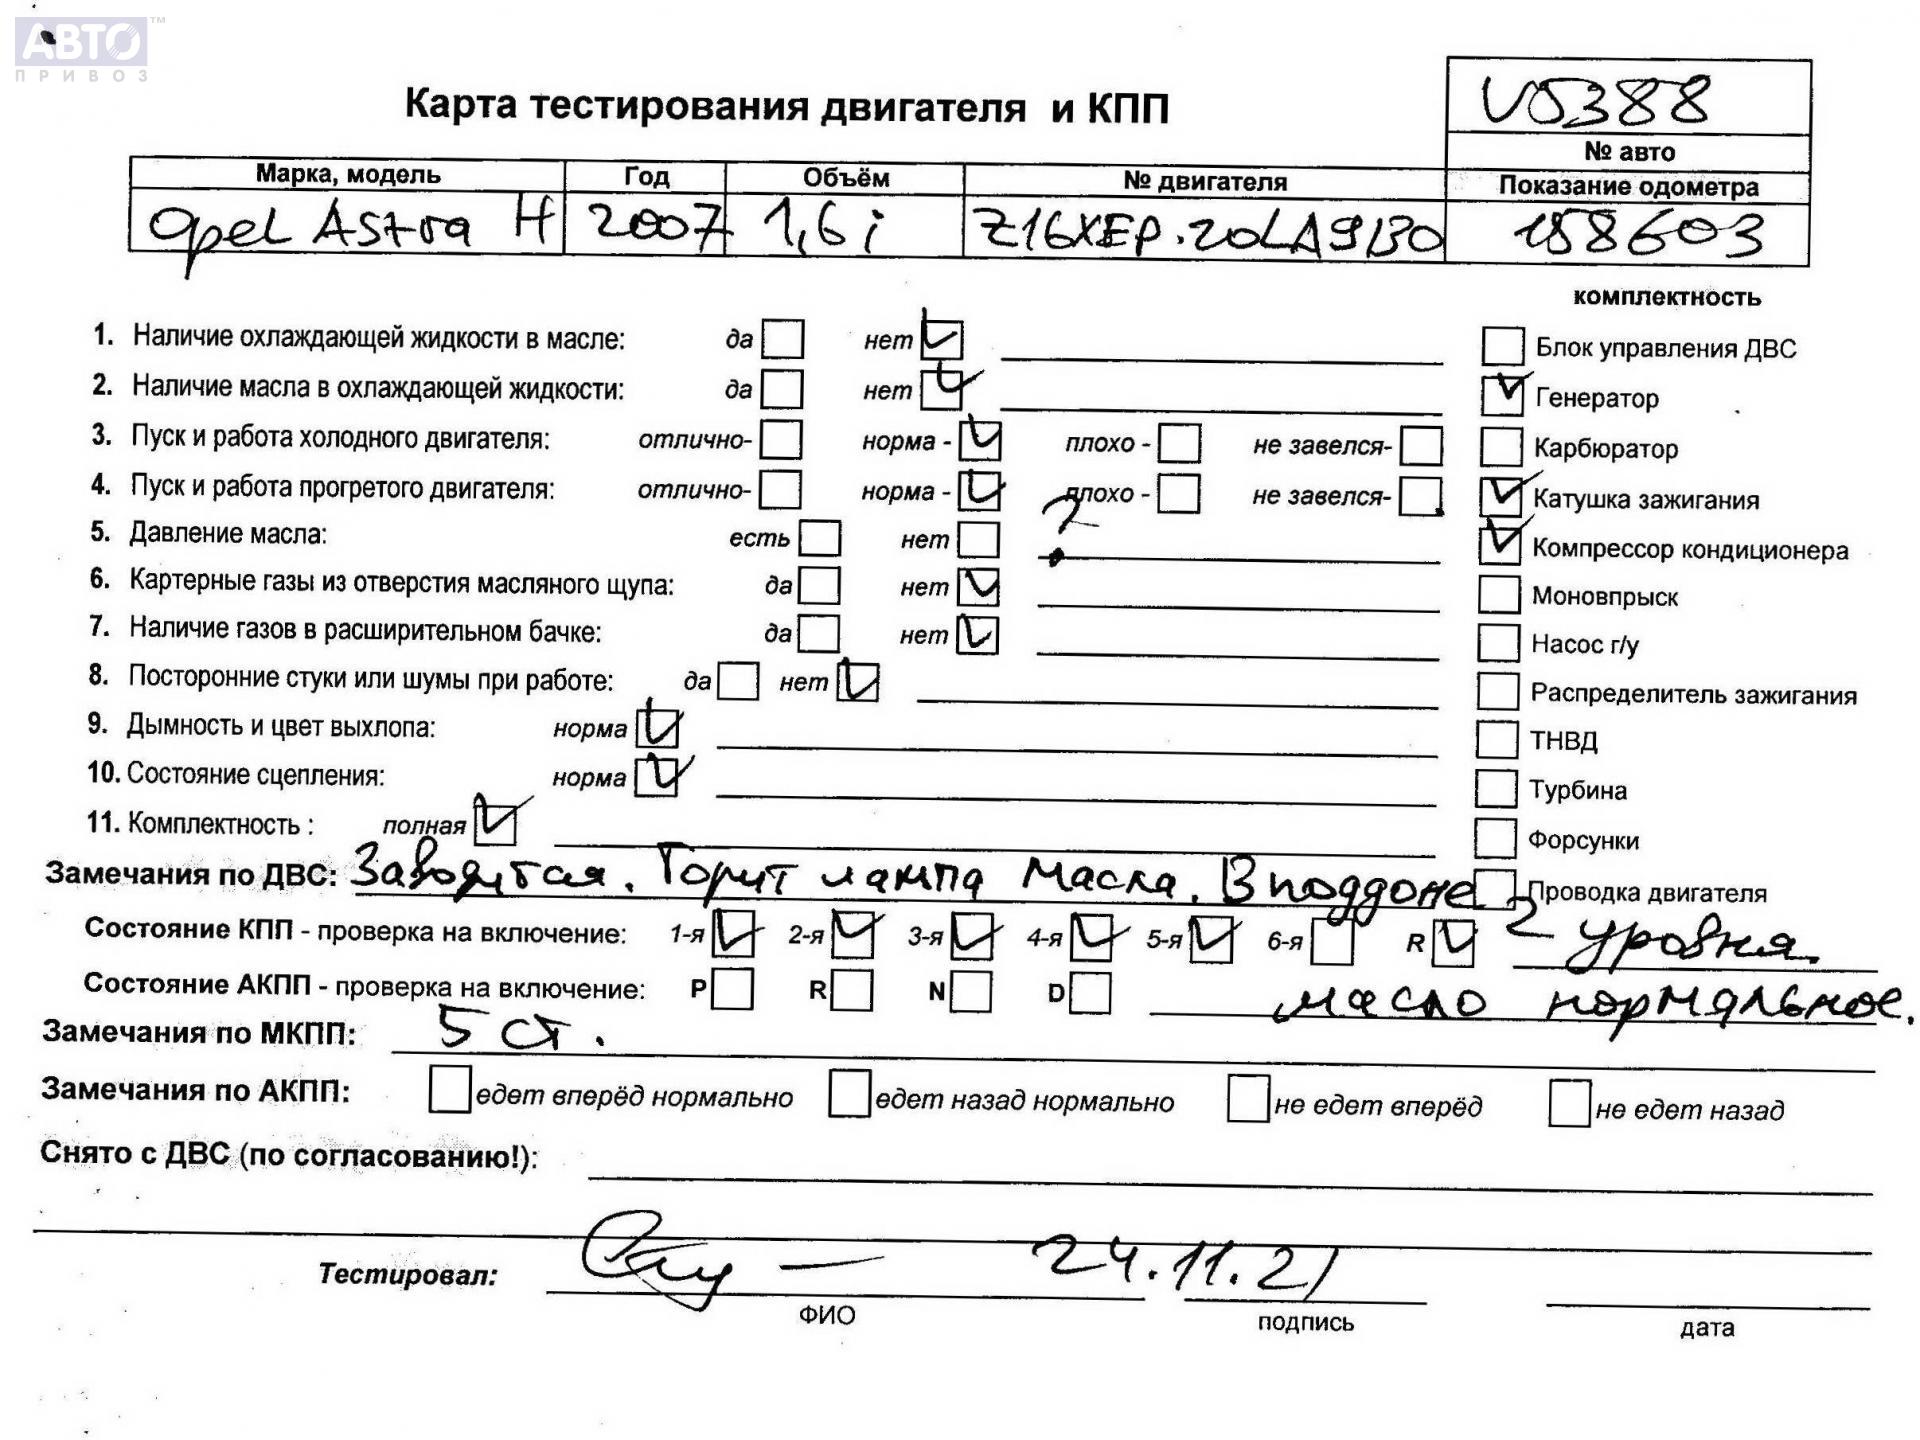 АВТО™
ПРИВОЗ
Карта тестирования двигателя и КПП
V5388
№ авто
Марка, модель Год Объём № двигателя Показание одометра
Opel Astra H 2007 1,6 i Z16XEP.20LA9130 158603
комплектность
1. Наличие охлаждающей жидкости в масле: да нет
Блок управления ДВС
2. Наличие масла в охлаждающей жидкости: да нет
Генератор
3. Пуск и работа холодного двигателя: отлично- норма - плохо - не завелся-
Карбюратор
4. Пуск и работа прогретого двигателя: отлично- норма - плохо - не завелся-
Катушка зажигания
5. Давление масла: есть нет ?
Компрессор кондиционера
6. Картерные газы из отверстия масляного щупа: да нет
Моновпрыск
7. Наличие газов в расширительном бачке: да нет
Насос г/у
8. Посторонние стуки или шумы при работе: да нет
Распределитель зажигания
9. Дымность и цвет выхлопа: норма
ТНВД
10. Состояние сцепления: норма
Турбина
11. Комплектность : полная
Форсунки
Замечания по ДВС: Заводится. Горит лампа масла. В поддоне
Проводка двигателя
Состояние КПП - проверка на включение: 1-я 2-я 3-я 4-я 5-я 6-я R 2 уровня.
Состояние АКПП - проверка на включение: P R N D масло нормальное.
Замечания по МКПП: 5 ст.
Замечания по АКПП: едет вперёд нормально едет назад нормально не едет вперёд не едет назад
Снято с ДВС (по согласованию!):
Тестировал: 24.11.21
ФИО подпись дата